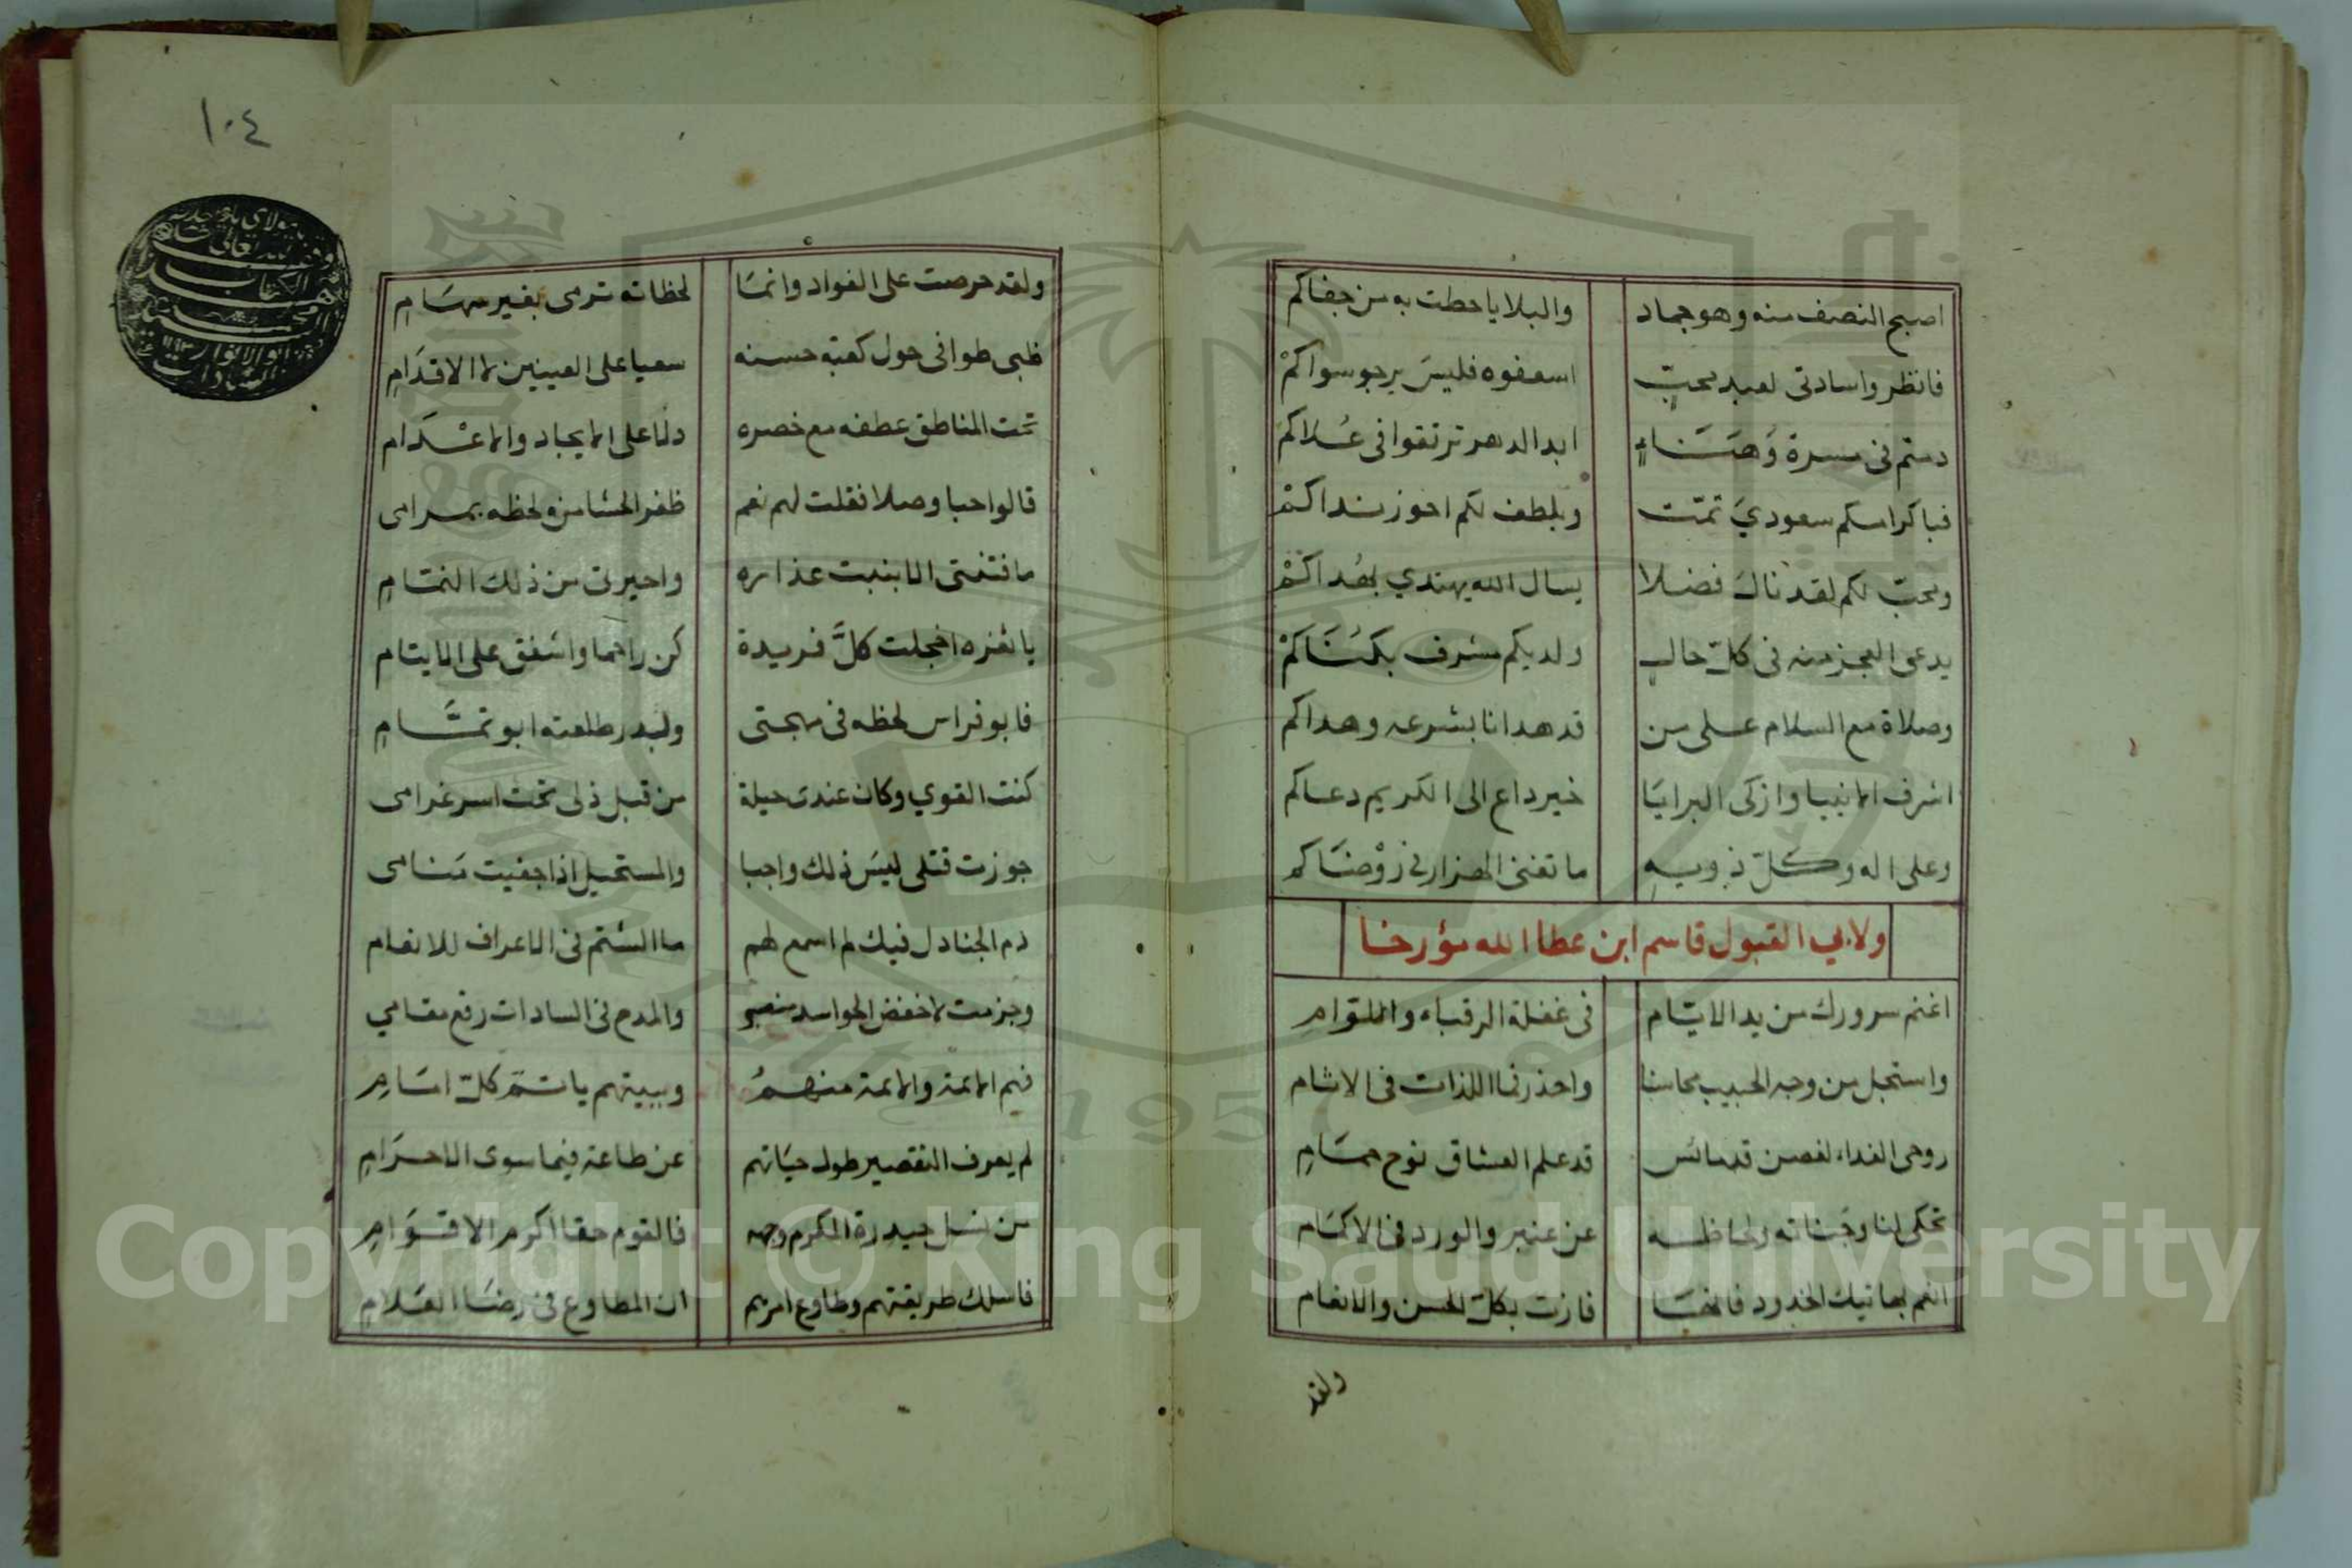 اصبح النصف منه وهو جماد والبلايا حطت به من جفاكم
فانظروا سادتى لعبد محبّ اسعفوه فليسَ يرجو سواكمْ
دمتم فى مسرة وَهَنَاءٍ ابد الدهر ترتقوا فى عُلاكمْ
فباكرامكم سعوديَ تمّت وبلطف لكم احوز نداكمْ
ومحبّ لكم لقد نال فضلا يسال الله يهتدي بهُداكمْ
يدعى العجز منه فى كلّ حالٍ ولديكم مشرف بكنَاكمْ
وصلاة مع السلام على من قد هدانا بشرعه وهداكم
اشرف الانبيا وازكى البرايَا خير داع الى الكريم دعاكم
وعلى اله وكلّ ذويهِ ما تغنى الهزار فى رَوْضَاكم
ولابي القبول قاسم ابن عطا الله مؤرخا
اغنم سرورك من يد الايّام فى غفلة الرقباء واللوّام
واستجل من وجه الحبيب محاسنا واحذر فما اللذات فى الاثام
روحى الفداء لغصن قد مائس قد علم العشاق نوح حمَامِ
تحكى لنا وجناته ولحاظه عن عنبر والورد فى الاكمَام
انعم بهاتيك الخدود فانهَا فازت بكلّ الحسن والانعام
ولقد
١٠٤
ولقد حرصت على الفواد وانمَا لحظاته ترمى بغير سهَامِ
ظبى طوافى حول كعبة حسنه سعيا على العينين لا الاقدَامِ
تحت المناطق عطفه مع خصره دلنا على الايجاد والاعْدَام
قالوا حبا وصلا فقلت لهم نعم ظفر الحشا من لحظه بمرامى
ما فتنتى الا بنبت عذاره واحيرتى من ذلك النمَامِ
يا ثغره اخجلت كلَّ فريدة كن راحما واشفق على الايتام
فابو فراس لحظه فى مهجتى ولبدر طلعته ابو تمَّامِ
كنت القوي وكان عندى حيلة من قبل ذلى تحت اسر غرامى
جوزت قتلى ليسَ ذلك واجبا والمستحيل اذا جفيت مَنامى
ذم الجنادل فيك لم اسمع لهم ما الشتم فى الاعراف للانعام
وجزمت لا خفض الحواسد منصبى والمدح فى السادات رفع مقامي
فهم الائمة والائمة منهمُ وببيتهم ياتمّ كلّ امَامِ
لم يعرف التقصير طول حيَاتهم عن طاعة فيما سوى الاحرَامِ
من نسل حيدرة المكرم وجهه فالقوم حقا اكرم الاقوَامِ
فاسلك طريقتهم وطاوع امرهم ان المطاوع فى رضَا العَلامِ
Copyright © King Saud University
1957